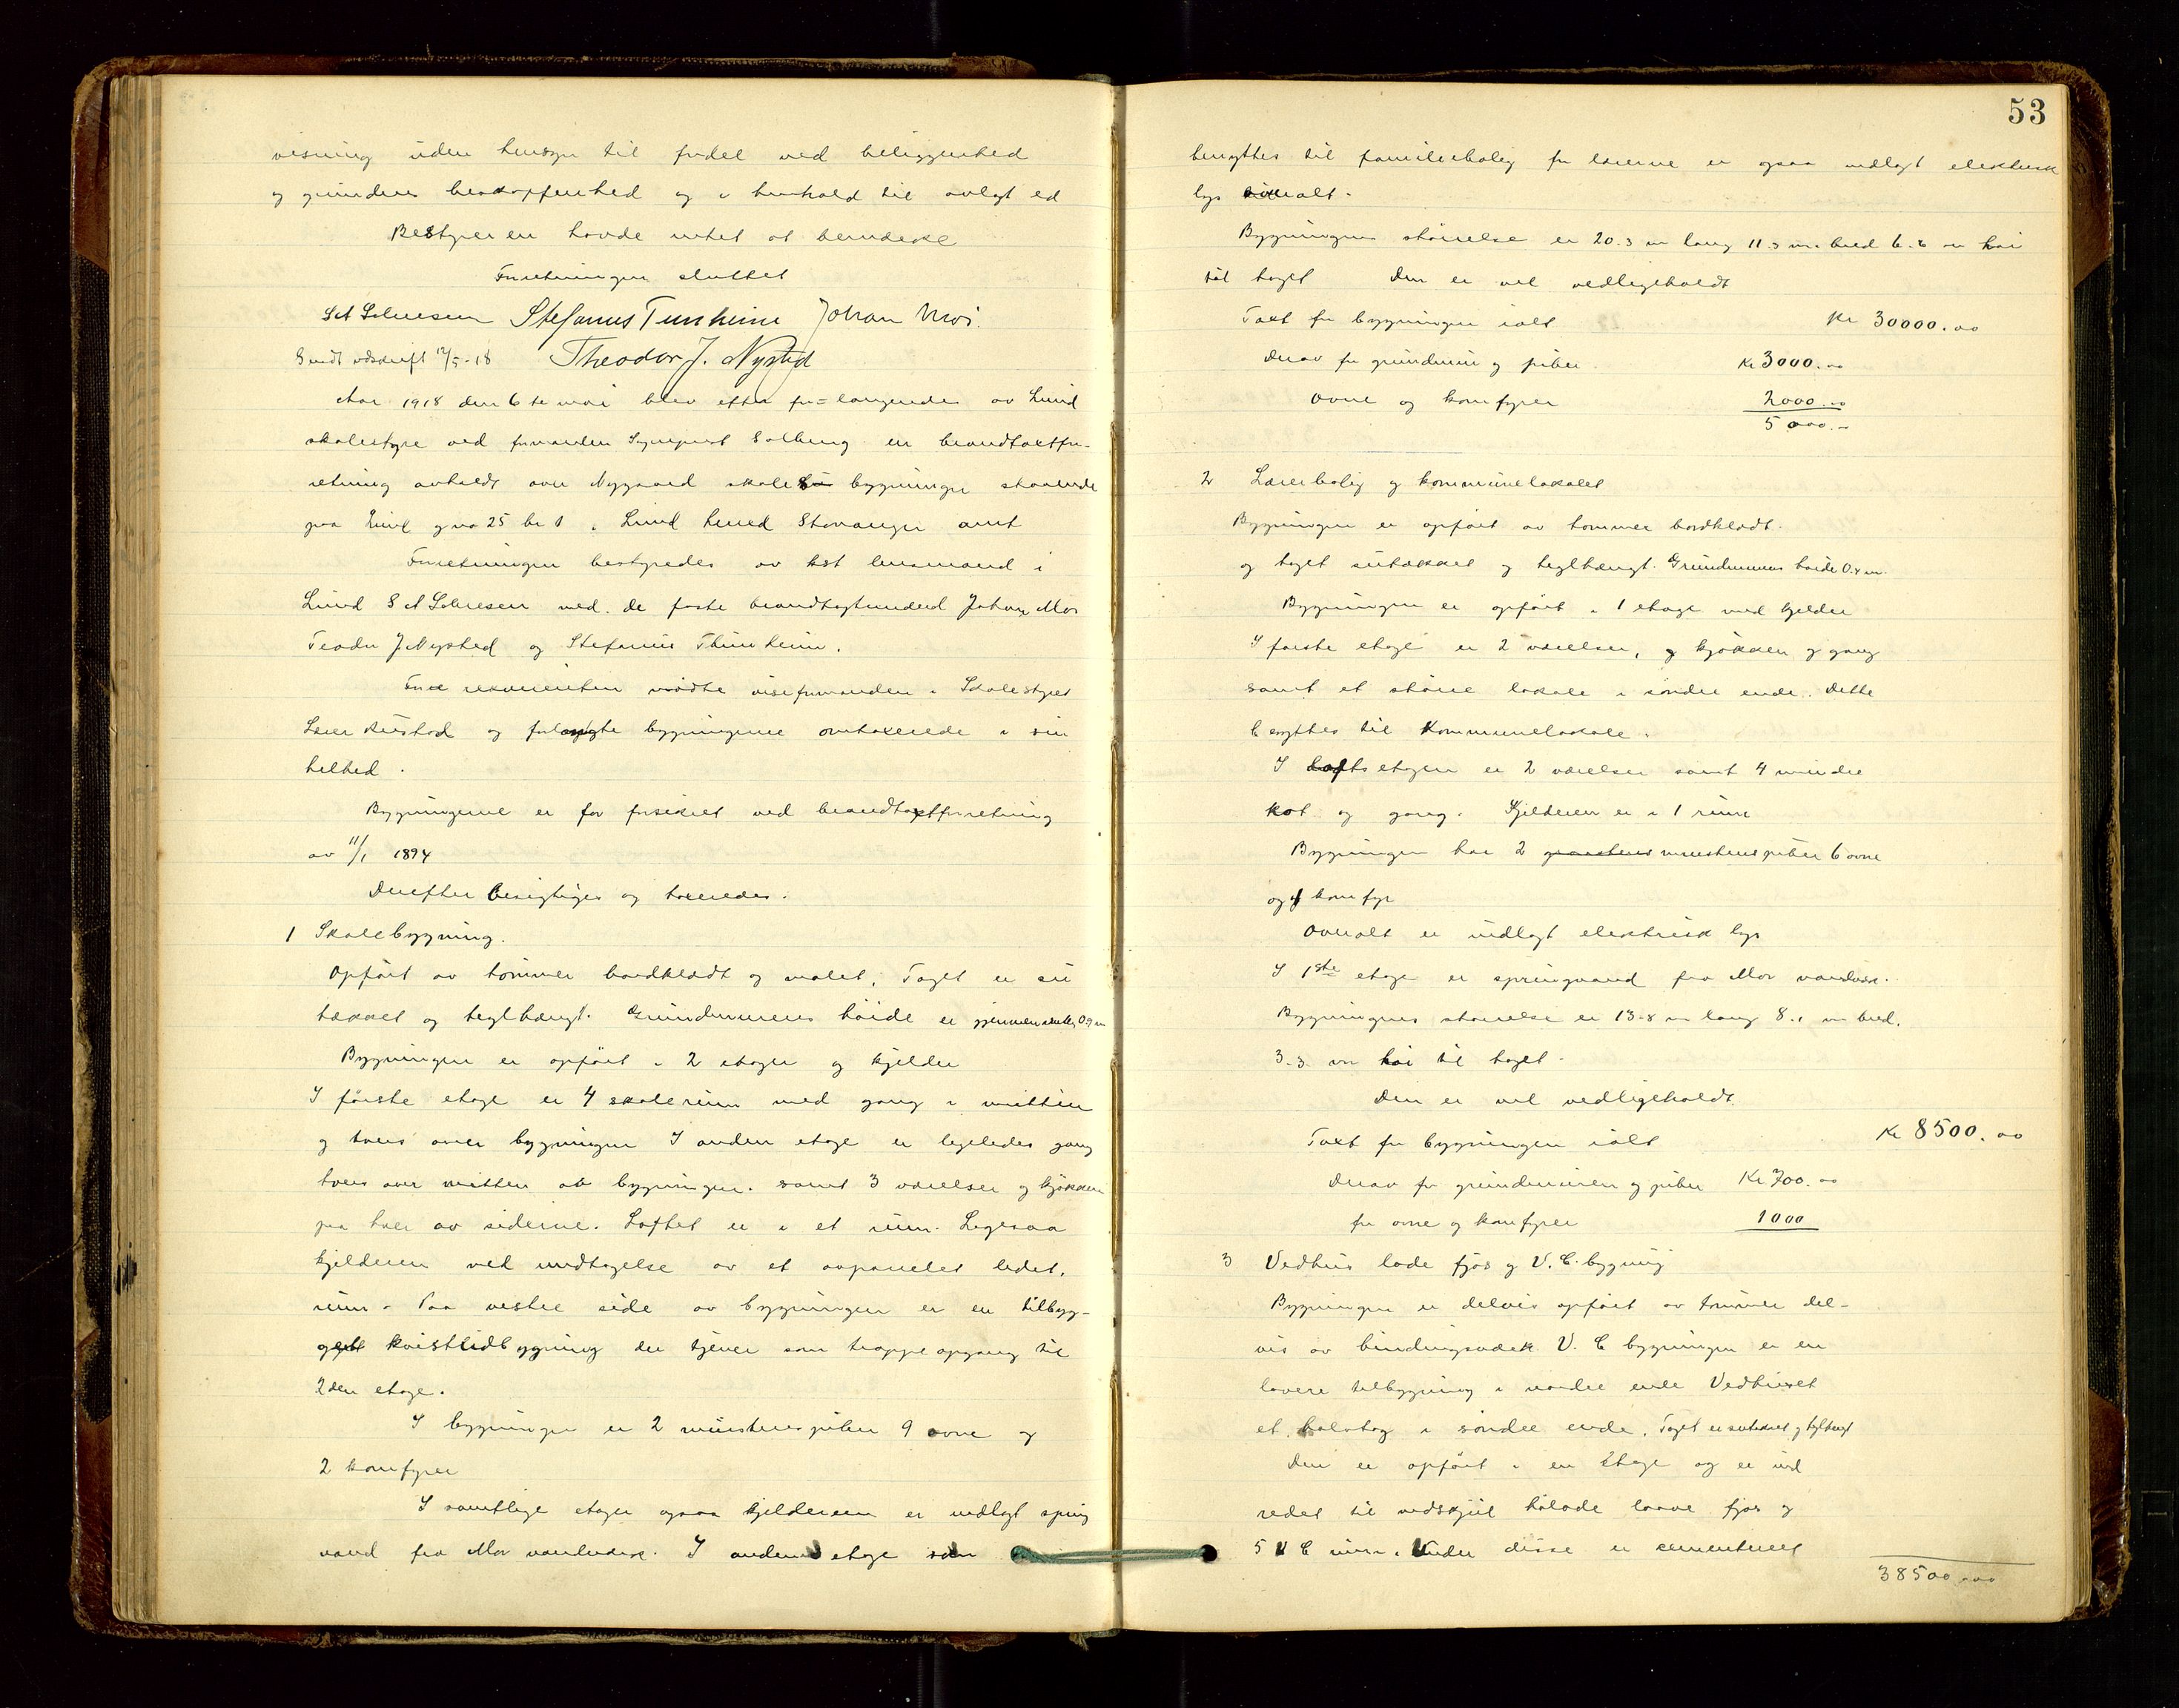 visning uden hensyn til fordel ved beliggenhed
og grundens beskaffenhed og i henhold til avlagt ed
Bestyreren havde intet at bemerke
Forretningen sluttet
Stefanus Tunheim Johan Moi.
Sendt utskrift 12/5-18 Theodor J. Nysted
Aar 1918 den 6te mai blev efter for=langende av Lund
skolestyre ved formanden Sogneprest Solberg en brandtakstfor-
retning avholdt over Nygaard skoles bygninger staaende
paa Eind gno 25 br 1 i Lund herred Stavanger amt
Forretningen bestyredes av kst lensmand i
Lund med de faste brandtagstmænd Johan Moi
Teodor J Nysted og Stefanus Thunheim.
For rekvirenten mødte viseformanden i Skolestyret
Lærer og forlangte bygningerne omtakserede i sin
helhed.
Bygningerne er før forsikret ved brandtakstforretning
av 11/1 1894
Derefter besigtiges og takseredes.
1 Skolebygning.
Opført av tømmer bordklædt og malet. Taget er su
tækket og teglhængt. Grundmurens høide er gjennemsnitlig 0.9 m
Bygningen er opført i 2 etager og kjelder
I første etage er 4 skolerum med gang i midten
og tvers over bygningen I anden etage er ligeledes gang
tvers over midten av bygningen. samt 3 værelser og kjøkken
paa hver av siderne. Loftet er i et rum. Ligesaa
kjelderen med undtagelse av et avpanelet lidet
rum. Paa vestre side av bygningen er en tilbyg-
get kvistlidbygning der tjener som trappeopgang til
2den etage.
I bygningen er 2 murstenspiber 9 ovne og
2 komfyrer
I samtlige etager ogsaa kjelderen er indlagt spring
vand fra Moi vandverk. I anden etage som
53
benyttes til familiebolig for lærerne er ogsaa indlagt elektrisk
lys overalt.
Bygningens størrelse er 20.3 m lang 11.3 m. bred 6.2 m høi
til taget Den er vel vedligeholdt
Takst for bygningen ialt Kr 30000.00
Derav for grundmur og piber Kr 3000.00
Ovne og komfyrer 2000.00
5000.00
2 Lærerbolig og kommunelokalet
Bygningen er opført av tømmer bordklædt.
og taget sutækket og teglhængt. Grundmurens høide 0.4 m.
Bygningen er opført i 1 etage med kjelder
I første etage er 2 værelser, og kjøkken og gang
samt et større lokale i søndre ende. Dette
benyttes til Kommunelokale.
I Loftsetagen er 2 værelser samt 4 mindre
kot og gang. Kjelderen er i 1 rum
Bygningen har 2 murstenspiber 6 ovne
og 1 komfyr
Overalt er indlagt elektrisk lys
I 1ste etage er springvand fra Moi vandverk.
Bygningens størrelse er 13.8 m lang 8.1 m bred.
3.3 m høi til taget.
Den er vel vedligeholdt.
Takst for bygningen ialt Kr 8500.00
Derav for grundmuren og piber Kr 700.00
for ovne og komfyrer 1000
3 Vedhus lade fjøs og V.C. bygning
Bygningen er delvis opført av tømmer del-
vis av bindingsverk V. C bygningen er en
lavere tilbygning i nordre ende Vedhuset
et halvtag i søndre ende. Taget er sutekket og teglhengt
Den er opført i en Etage og er ind
redet til vedskjul høilade laave fjøs og
5 V C rum. Under disse er cementeret
38500.00